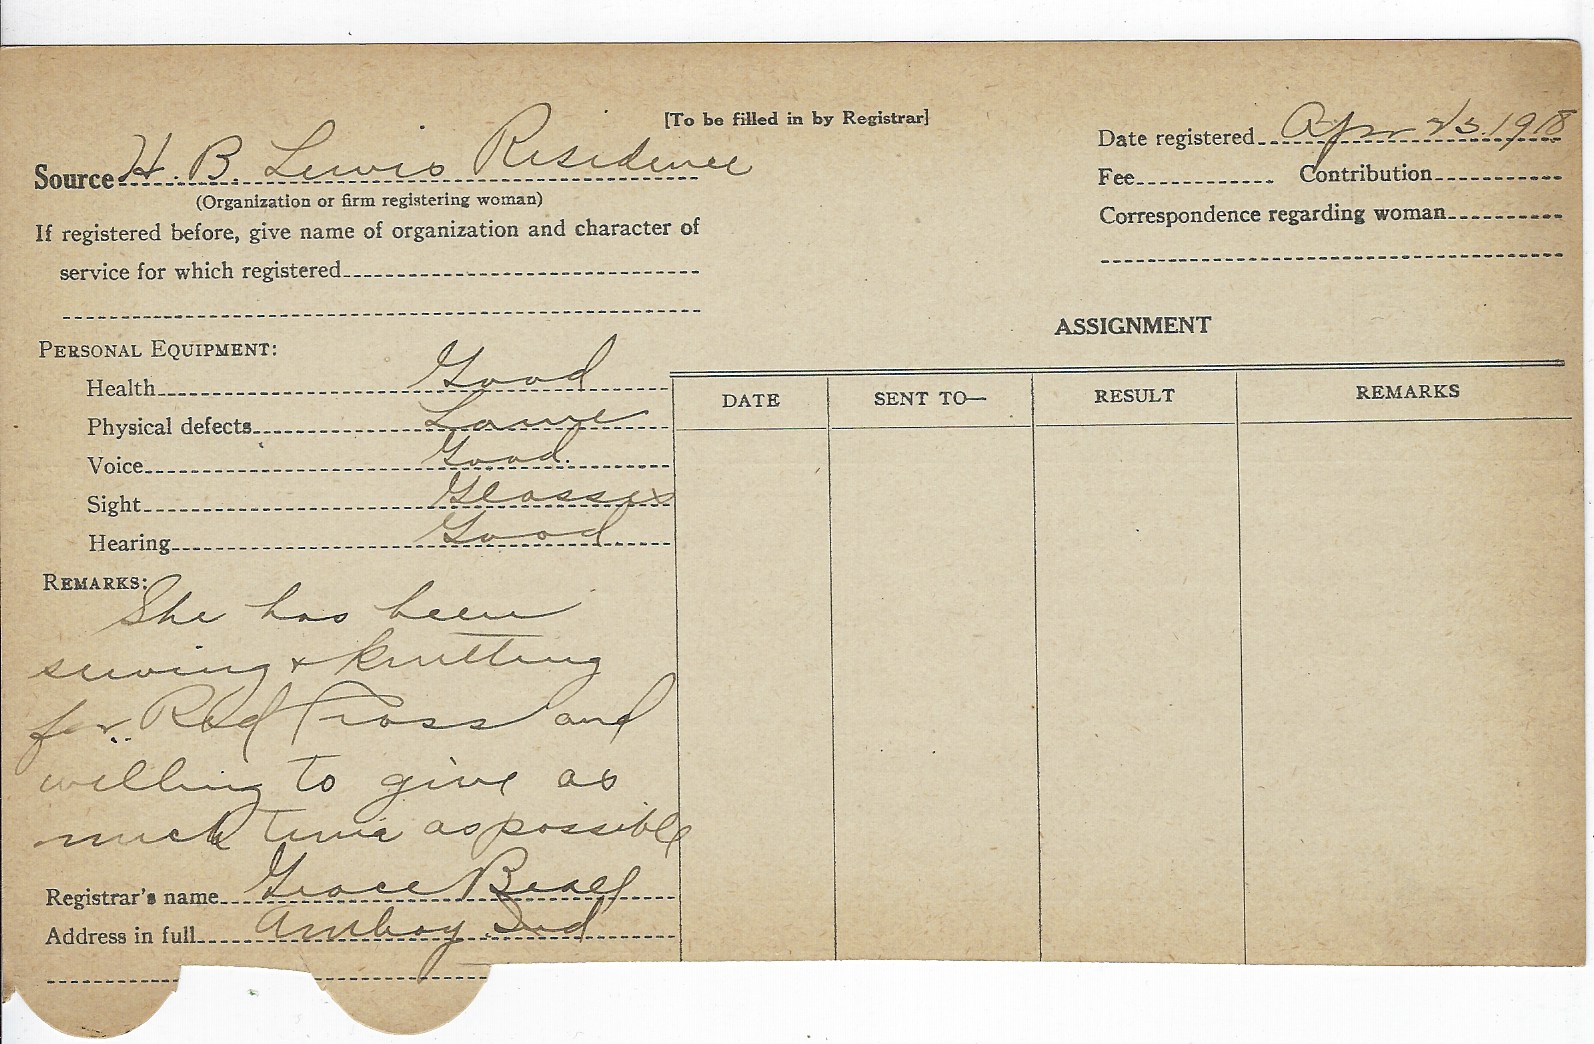 [To be filled in by Registrar]
Source H. B. Lewis Residence
(Organization or firm registering woman)
If registered before, give name of organization and character of
service for which registered
Date registered Apr 25. 1918
Fee Contribution
Correspondence regarding woman
PERSONAL EQUIPMENT:
Health Good
Physical defects Lame
Voice Good.
Sight Glasses
Hearing Good
REMARKS:
She has been
sewing & knitting
for Red Cross and
willing to give as
much time as possible
Registrar's name Grace Beall
Address in full Amboy Ind
ASSIGNMENT
DATE SENT TO— RESULT REMARKS